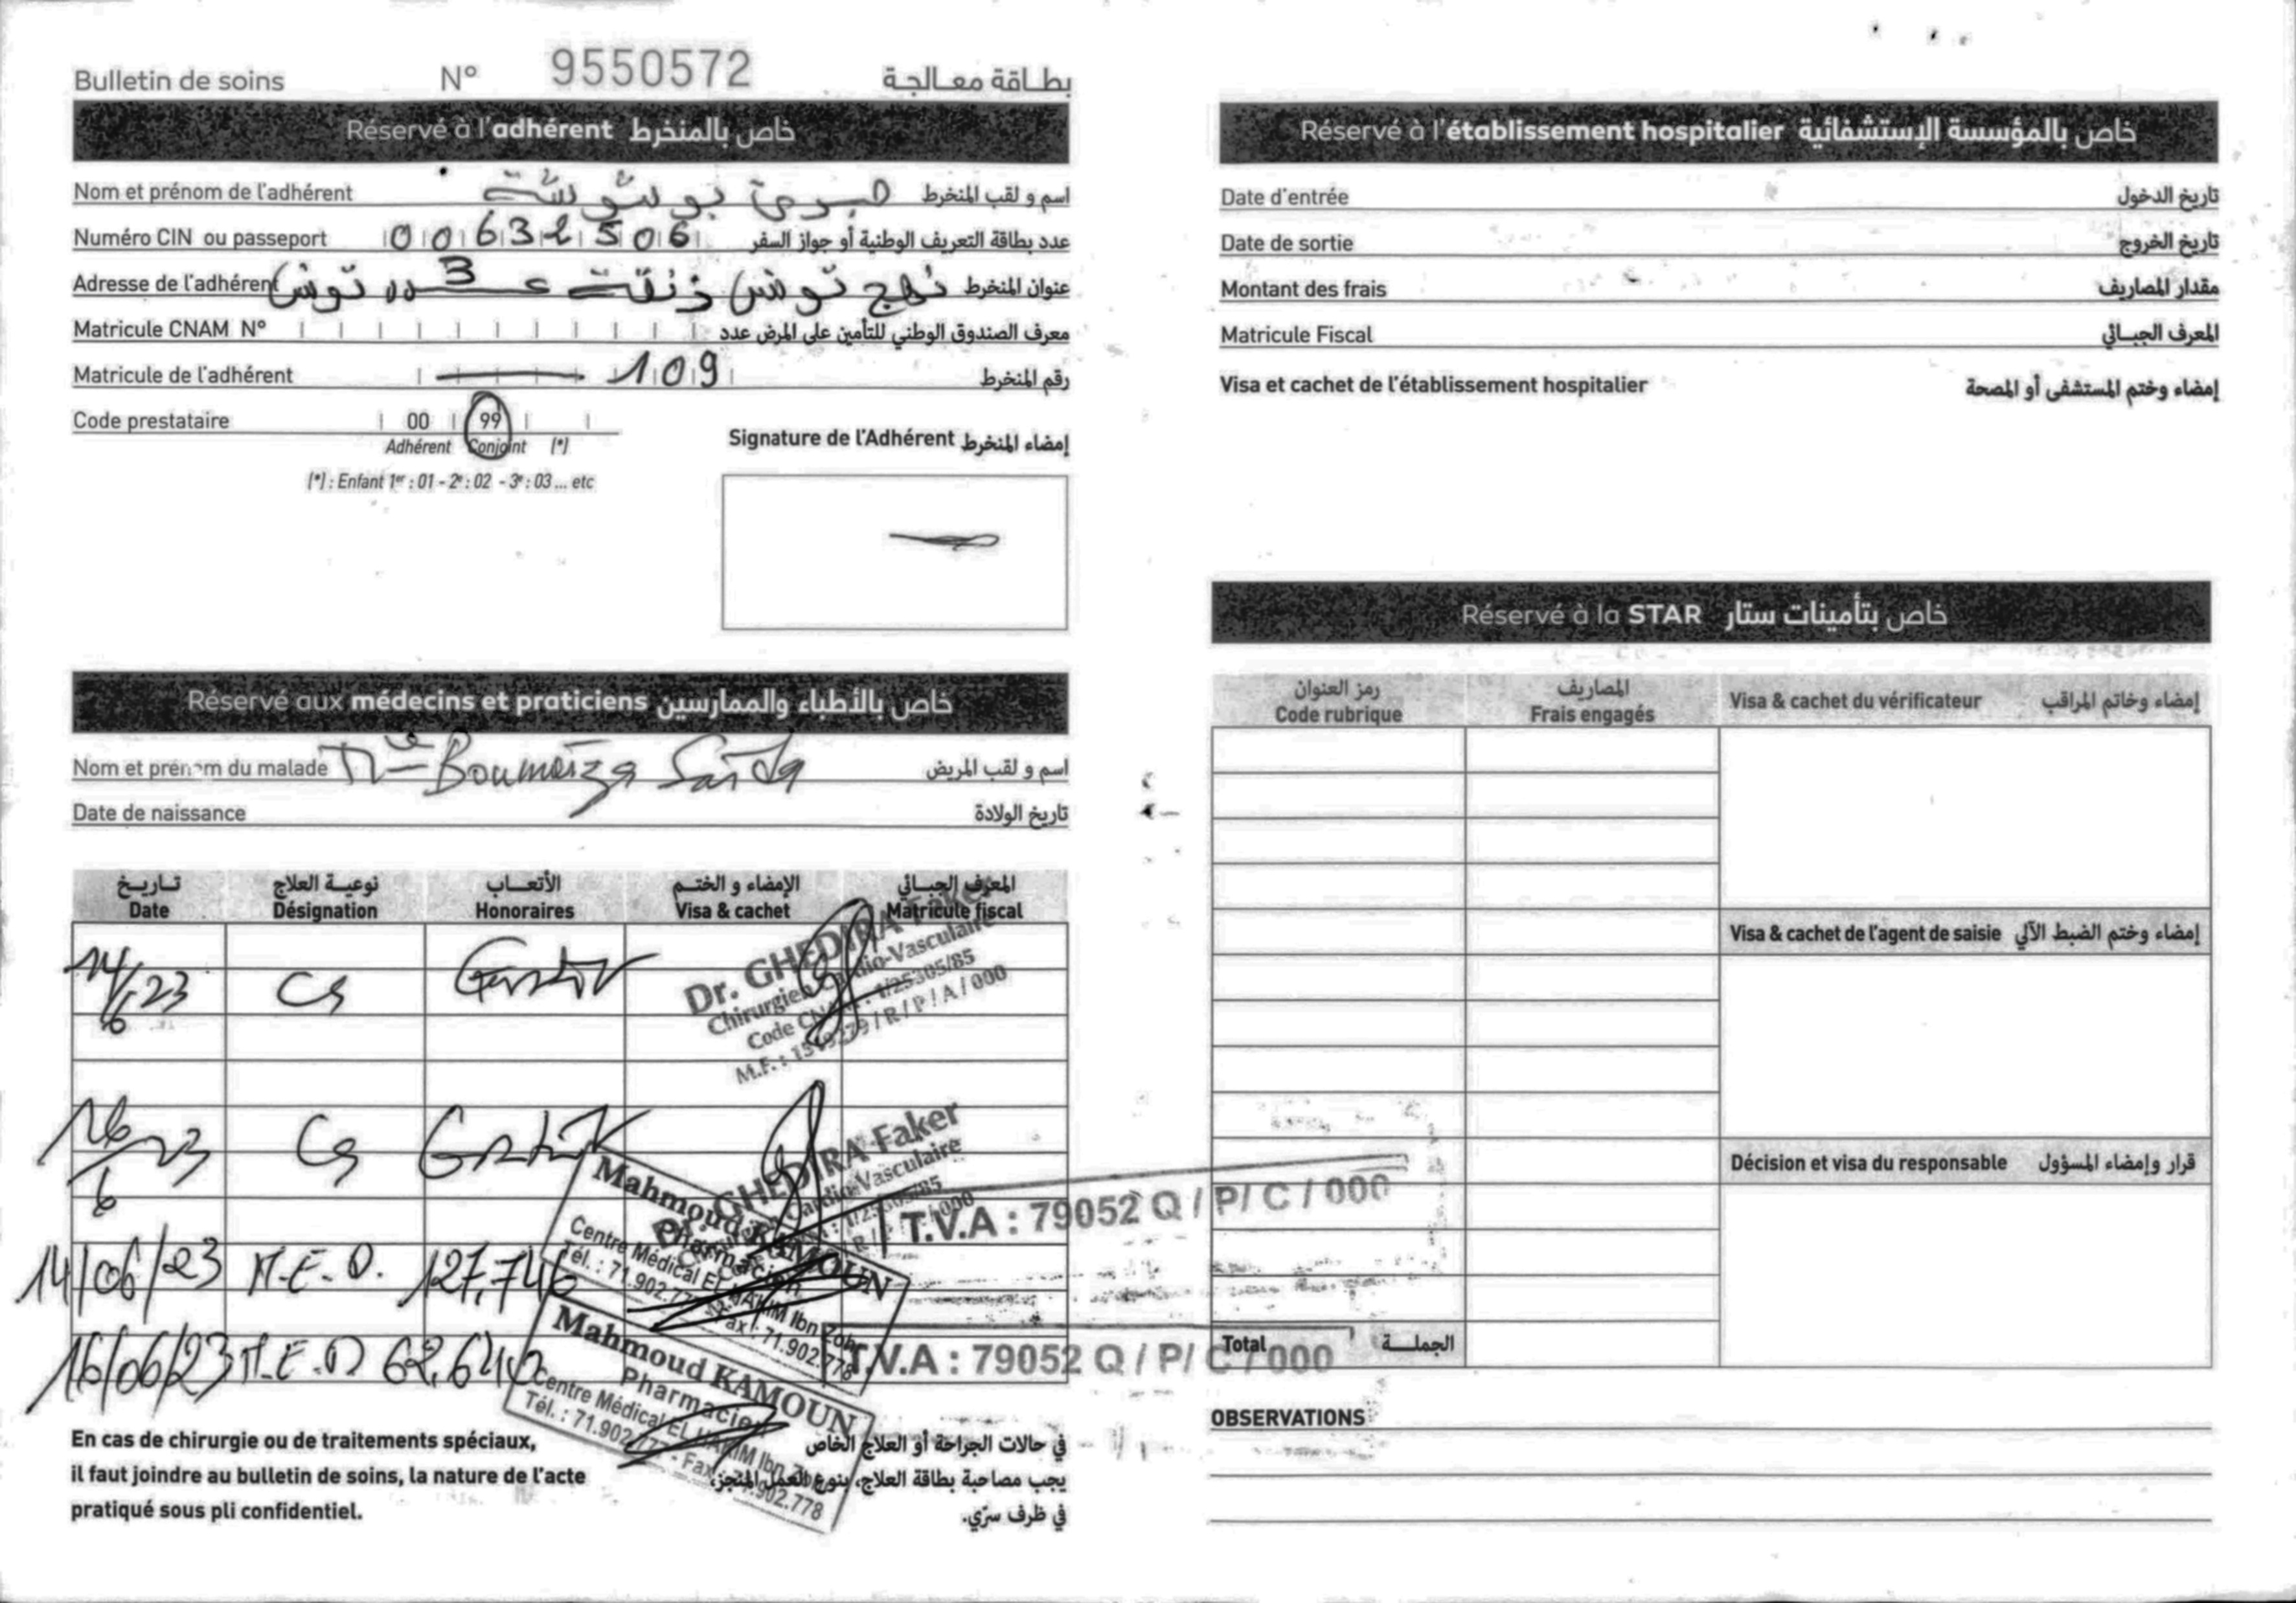 Bulletin de soins N° 9550572 بطاقة معالجة
Réservé à l'adhérent خاص بالمنخرط
Nom et prénom de l'adhérent صبري بوشوشة اسم و لقب المنخرط
Numéro CIN ou passeport 00632506 عدد بطاقة التعريف الوطنية أو جواز السفر
Adresse de l'adhérent نهج تونس زنقة عـ 3 ـدد تونس عنوان المنخرط
Matricule CNAM N° معرف الصندوق الوطني للتأمين على المرض عدد
Matricule de l'adhérent 109 رقم المنخرط
Code prestataire 00 99
Adhérent Conjoint (*)
(*) : Enfant 1er : 01 - 2e : 02 - 3e : 03 ... etc
Signature de l'Adhérent إمضاء المنخرط
Réservé aux médecins et praticiens خاص بالأطباء والممارسين
Nom et prénom du malade Mme Boumaiza Saida اسم و لقب المريض
Date de naissance تاريخ الولادة
تاريخ نوعية العلاج الأتعاب الإمضاء و الختم المعرف الجبائي
Date Désignation Honoraires Visa & cachet Matricule fiscal
14/6/23 Cs
Dr. GHEDIRA Faker
Chirurgien Cardio-Vasculaire
Code CNAM : 1/25305/85
M.F. : /R/P/A/000
16/6/23 Cs
Dr. GHEDIRA Faker
Cardio-Vasculaire
14/06/23 M.E.D. 127,746
Mahmoud KAMOUN
Pharmacien
Centre Médical EL HAKIM Ibn Zohr
Tél. : 71.902.77 Fax : 71.902.778
T.V.A : 79052 Q / P/ C / 000
16/06/23 M.E.D 62,642
Mahmoud KAMOUN
Pharmacien
Centre Médical EL HAKIM Ibn Zohr
Tél. : 71.902.777 - Fax : 71.902.778
T.V.A : 79052 Q / P/ C / 000
En cas de chirurgie ou de traitements spéciaux,
il faut joindre au bulletin de soins, la nature de l'acte
pratiqué sous pli confidentiel.
في حالات الجراحة أو العلاج الخاص
يجب مصاحبة بطاقة العلاج، بنوع العمل المنجز،
في ظرف سرّي.
Réservé à l'établissement hospitalier خاص بالمؤسسة الإستشفائية
Date d'entrée تاريخ الدخول
Date de sortie تاريخ الخروج
Montant des frais مقدار المصاريف
Matricule Fiscal المعرف الجبائي
Visa et cachet de l'établissement hospitalier إمضاء وختم المستشفى أو المصحة
Réservé à la STAR خاص بتأمينات ستار
رمز العنوان المصاريف
Code rubrique Frais engagés Visa & cachet du vérificateur إمضاء وخاتم المراقب
Visa & cachet de l'agent de saisie إمضاء وختم الضبط الآلي
Décision et visa du responsable قرار وإمضاء المسؤول
Total الجملة
OBSERVATIONS